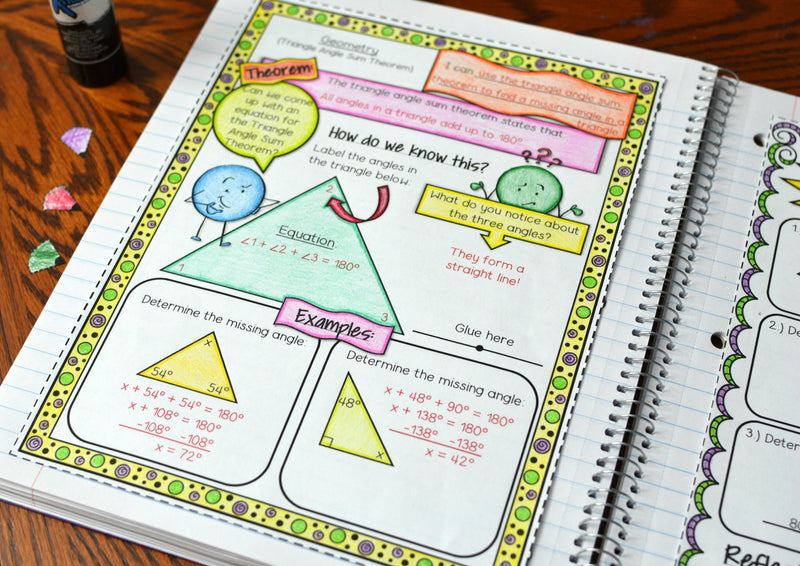 Geometry
(Triangle Angle Sum Theorem)
I can use the triangle angle sum
theorem to find a missing angle in a
triangle.
Theorem:
The triangle angle sum theorem states that:
All angles in a triangle add up to 180°
an we come
up with an
equation for
the Triangle
Angle Sum
Theorem?
How do we know this?
Label the angles in
the triangle below:
???
What do you notice about
the three angles?
They form a
straight line!
2
Equation:
∠1 + ∠2 + ∠3 = 180°
1
3
Glue here
Examples:
Determine the missing angle:
x
54°
54°
x + 54° + 54° = 180°
x + 108° = 180°
-108° -108°
x = 72°
Determine the missing angle:
48°
x
x + 48° + 90° = 180°
x + 138° = 180°
-138° -138°
x = 42°
1.
2.) De
3.) Deter
8
Refle